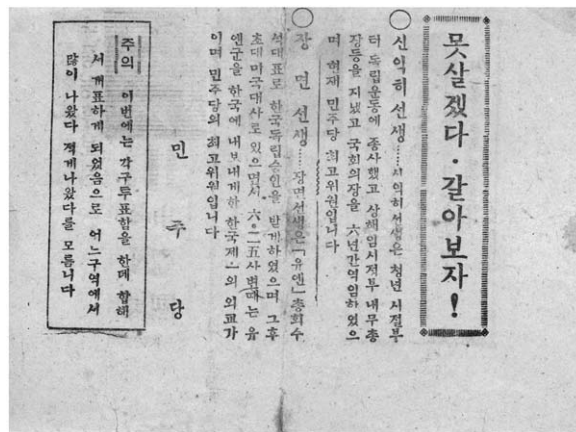 못살겠다·갈아보자!
○ 신익히선생……신익히선생은 청년시절부
터 독립운동에 종사했고 상해임시정부내무총
장등을 지냈고 국회의장을 六년간역임하였으
며 현재 민주당 최고위원입니다
○ 장면선생……장면선생은「유엔」총회수
석대표로 한국독립승인을 받게하였으며 그후
초대미국대사로 있으면서 六·二五사변때는 유
엔군을 한국에 내보내게한 한국제一의 외교가
이며 민주당의 최고위원입니다
민주당
주의 이번에는 각구투표함을 한데 합해
서 개표하게 되었음으로 어느구역에서
많이 나왔다 적게나왔다를 모릅니다